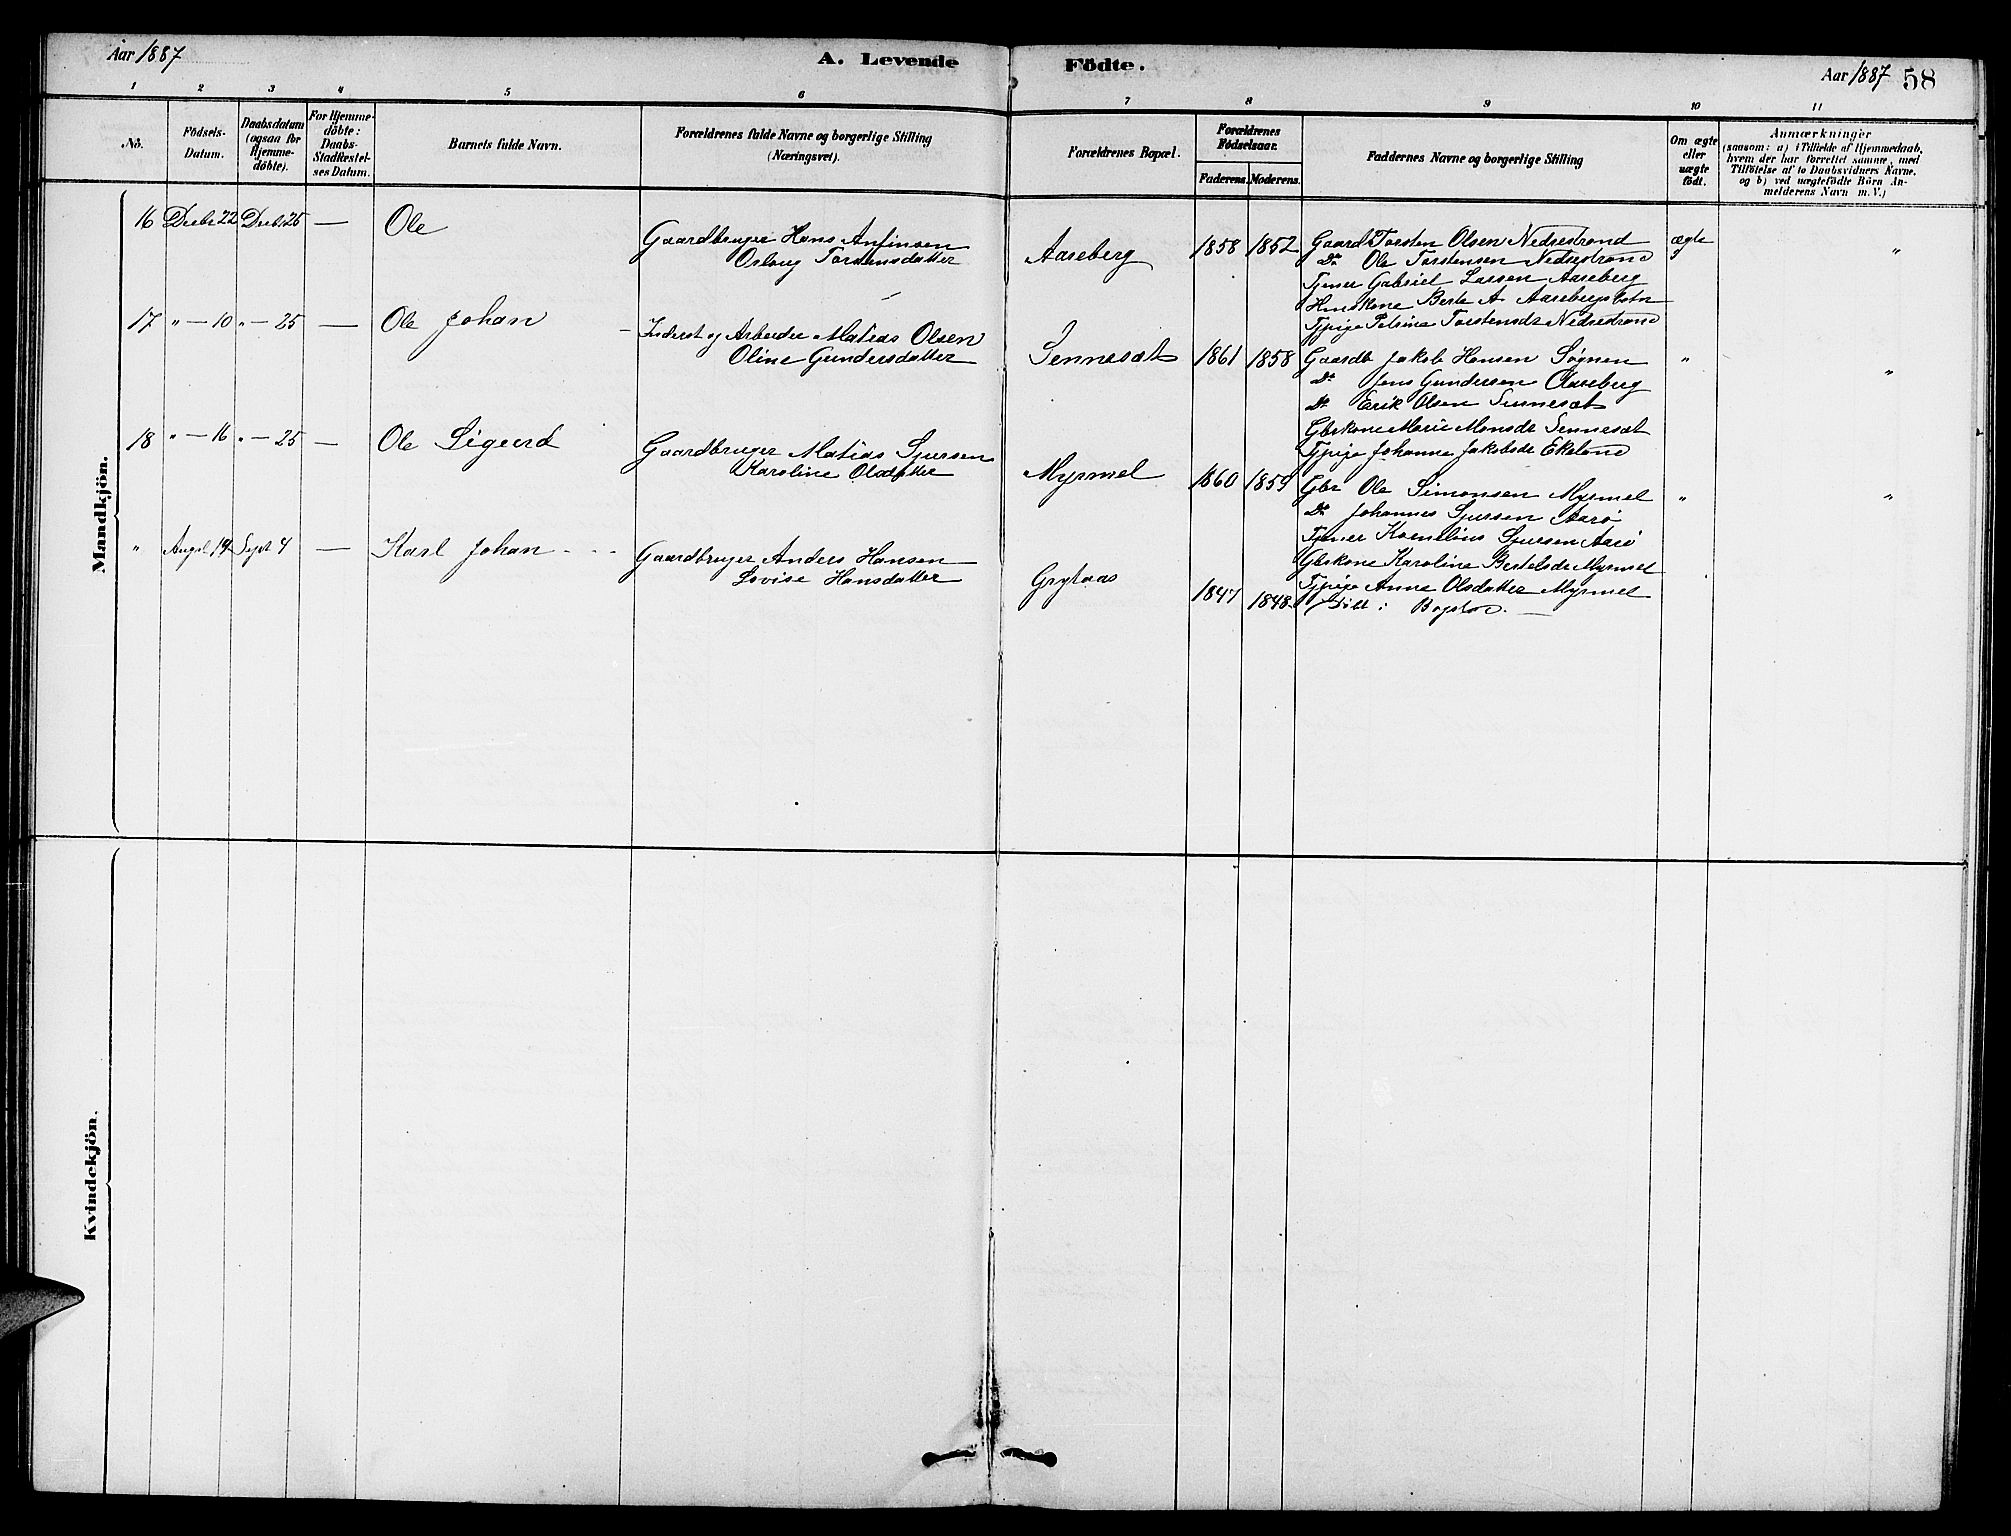 Aar 1887
A. Levende Födte.
Aar 1887 58
1 2 3 4 5 6 7 8 9 10 11
No.
Födsels-Datum.
Daabsdatum (ogsaa for Hjemme-döbte).
For Hjemme-döbte: Daabs-Stadfæstel-ses Datum.
Barnets fulde Navn.
Forældrenes fulde Navne og borgerlige Stilling (Næringsvei).
Forældrenes Bopæl.
Forældrenes Fødselsaar.
Faderens. Moderens.
Faddernes Navne og borgerlige Stilling
Om ægte eller uægte födt.
Anmærkninger
(saasom: a) i Tilfælde af Hjemmedaab,
hvem der har forrettet samme, med
Tilföielse af to Daabsvidners Navne.
og b) ved uægtefödte Börn An-
melderens Navn m. V.)
Mandkjön.
16 Decbr 22 Decbr 25 — Ole
Gaardbruger Hans Anfinsen
Oslaug Torstensdatter
Aaseberg 1858 1852
Gaardb Torsten Olsen Nedrestrand
Do Ole Torstensen Nedrestrand
Tjener Gabriel Larsen Aaseberg
Huuskone Berte A. Aaseberg
Tjpige Torstensdr Nedrestrand
ægte "
17 " — 10 " — 25 — Ole Johan
Inderst og Arbeider Matias Olsen
Oline Gundersdatter
Sennesæt 1861 1858
Gaardb Jakob Hansen Søgnen
Do Jens Gundersen Aaseberg
Do Erik Olsen Sennesæt
Gbrkone Marie Monsdr Sennesæt
Tjpige Johanne Jakobsdr Ekeland
" "
18 " — 16 " — 25 — Ole Sigurd
Gaardbruger Matias Sjursen
Karoline Olsdatter
Myrmel 1860 1859
Gbr Ole Simonsen Myrmel
Do Johannes Sjursen Aarø
Tjener Kornelius Sjursen Aarø
Gbrkone Karoline Bertelsdr Myrmel
Tjpige Anna Olsdatter Myrmel
" "
" Augst 14 Sept 4 — Karl Johan
Gaardbruger Anders Hansen
Lovise Hansdatter
Grytaas 1847 1848
Født i
Kvindekjön.